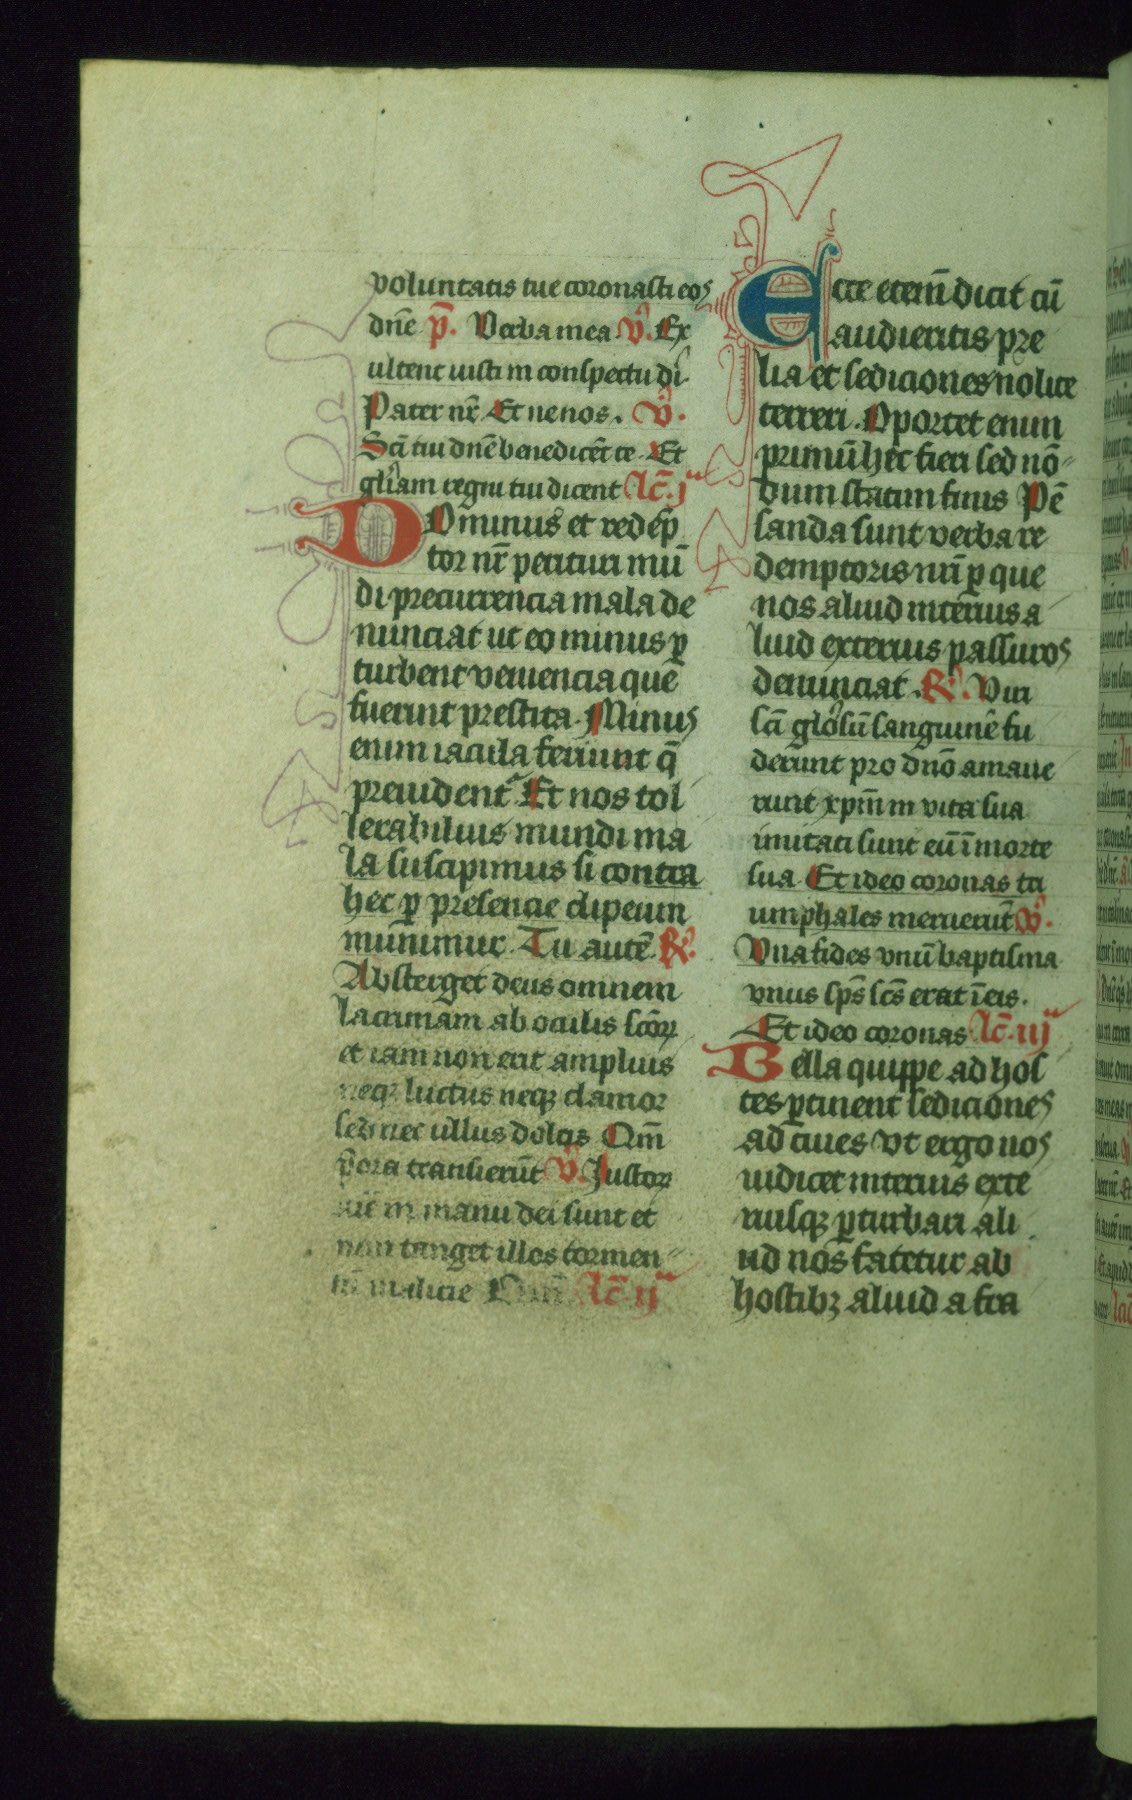 voluntatis tue coronasti eos
dn̄e p̄. Verba mea v̄. Ex
ultent iusti in conspectu di.
Pater nr̄. Et ne nos. v̄.
Sc̄i tui dn̄e benedicēt te. Et
gl̄iam regni tui dicent lc̄. j
Dominus et redēp
tor nr̄ perituri mū
di precurrencia mala de
nunciat ut eo minus ꝑ
turbent veniencia que
fuerint prestita. Minus
enim iacula feriunt q̄
preuident̄ Et nos tol
lerabilius mundi ma
la suscipimus si contra
hec ꝑ presencie clipeum
munimur. Tu autē. R̄.
Absterget deus omnem
lacrimam ab oculis scōꝝ
et iam non erit amplius
neqꝫ luctus neqꝫ clamor
sed nec ullus dolor Qm̄
p̄ora transierūt v̄. Iustoꝝ
aīe in manu dei sunt et
non tanget illos tormen
tū malicie Qm̄ lc̄. ij
Ecce etem̄ dicit cū
audieritis pre
lia et sediciones nolite
terreri. Oportet enim
primū hec fieri sed nō
dum statim finis Pē
sanda sunt verba re
demptoris nr̄i ꝑ que
nos aliud interius a
liud exterius passuros
denunciat. R̄. Viri
sc̄i glōsū sanguinē fu
derunt pro dn̄o amaue
runt xp̄m in vita sua
imitati sunt eū ī morte
sua Et ideo coronas tri
umphales meruerūt v̄.
Vna fides vnū baptisma
vnus sp̄s sc̄s erat ī eis.
Et ideo coronas lc̄. iij
Bella quippe ad hos
tes ꝑtinent sediciones
ad ciues Vt ergo nos
iudicet interius exte
riusqꝫ ꝑturbari ali
ud nos fatetur ab
hostibꝫ aliud a fra